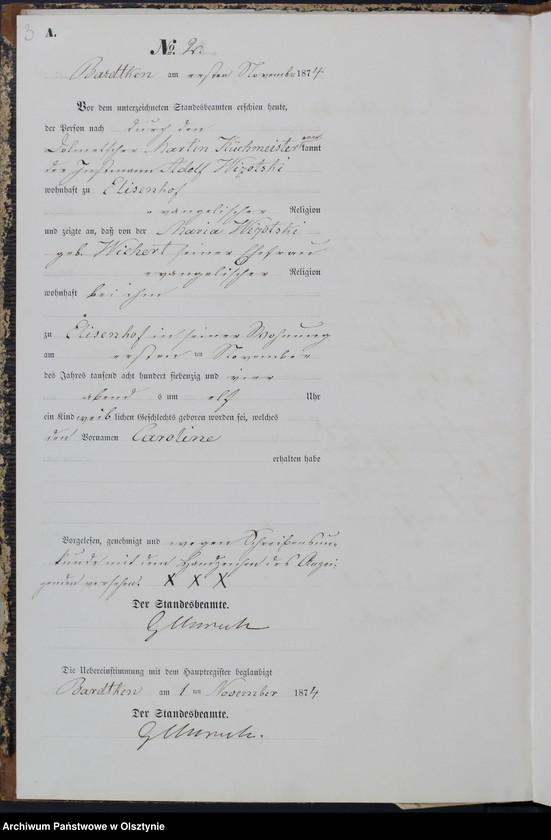 3 A.
No. 2.
Bardtken am ersten November 1874
Vor dem unterzeichneten Standesbeamten erschien heute,
der Person nach durch den
Dolmetscher Martin Küchmeister kannt
der Instmann Adolf Wizotski
wohnhaft zu Elisenhof
evangelischer Religion
und zeigte an, daß von der Maria Wizotski
geb. Wichert seiner Ehefrau
evangelischer Religion
wohnhaft bei ihm
zu Elisenhof in seiner Wohnung
am ersten ten November
des Jahres tausend acht hundert siebenzig und vier
abend s um elf Uhr
ein Kind weiblichen Geschlechts geboren worden sei, welches
den Vornamen Caroline
erhalten habe
Vorgelesen, genehmigt und wegen Schreibensun-
kunde mit dem Handzeichen des Anzei-
genden versehen. X X X
Der Standesbeamte.
Die Uebereinstimmung mit dem Hauptregister beglaubigt
Bardtken am 1 ten November 1874
Der Standesbeamte.
Archiwum Państwowe w Olsztynie